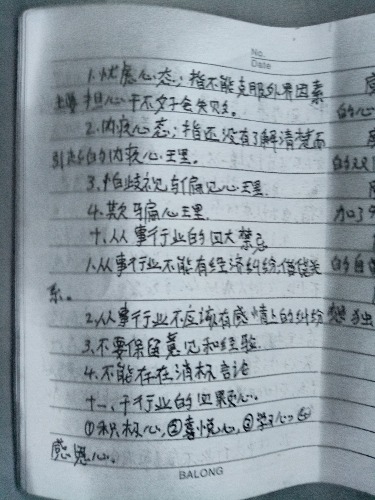 No.
Date
1.忧虑心态；指不能克服外界因素
担心干不好会失败。
2.内疚心态；指还没有了解清楚而
引起的内疚心理。
3.怕歧视与偏见心理。
4.欺骗心理.
十、从事行业的四大禁忌
1.从事行业不能有经济纠纷.借贷关
系。
2.从事行业不应该有感情上的纠纷
3.不要保留意见和经验.
4.不能存在消极言论
十一、干行业的四颗心。
①积极心,②喜悦心,③学习心④
感恩心。
的心
加了
的自
想 独
BALONG